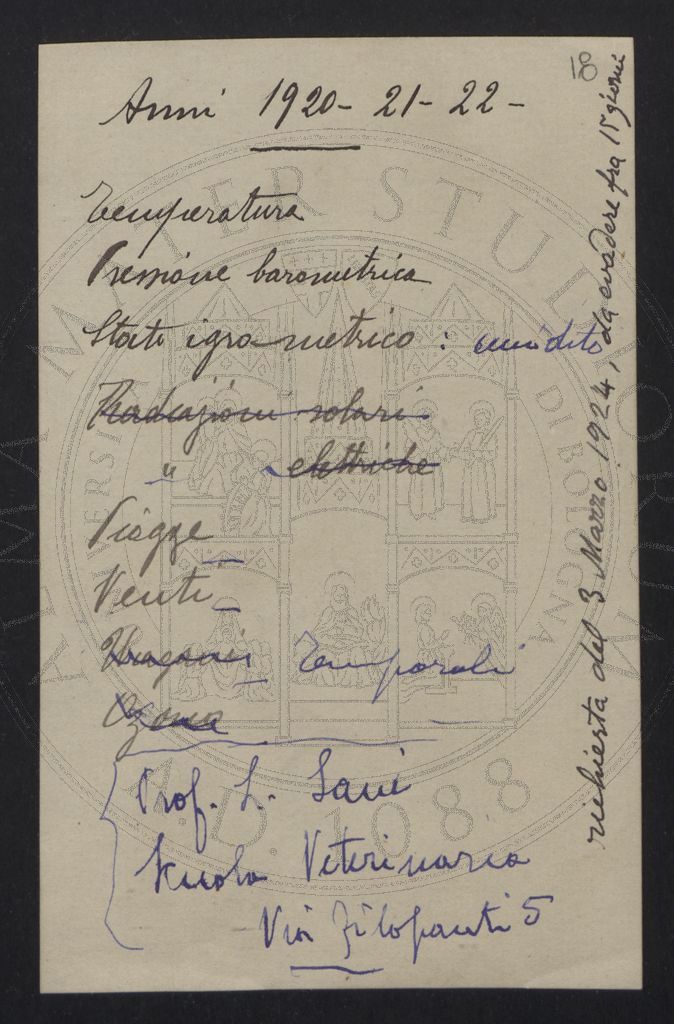 18
Anni 1920- 21- 22-
Temperatura
Pressione barometrica
Stato igrometrico : umidità
Radiazioni solari
" elettriche
Piogge
Venti
Uragani Temporali
Ozono
Prof. L. Sani
Scuola Veterinaria
Via Filopanti 5
richiesta del 3 Marzo 1924, da evadere fra 15 giorni
ALMA MATER STUDIORUM
UNIVERSITÀ DI BOLOGNA
A.D. 1088